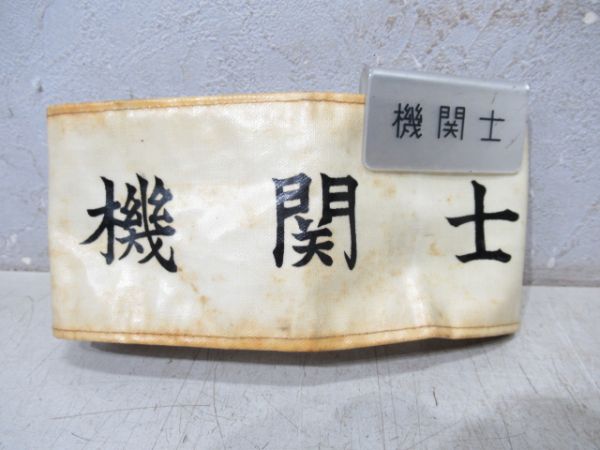 機関士
機関士